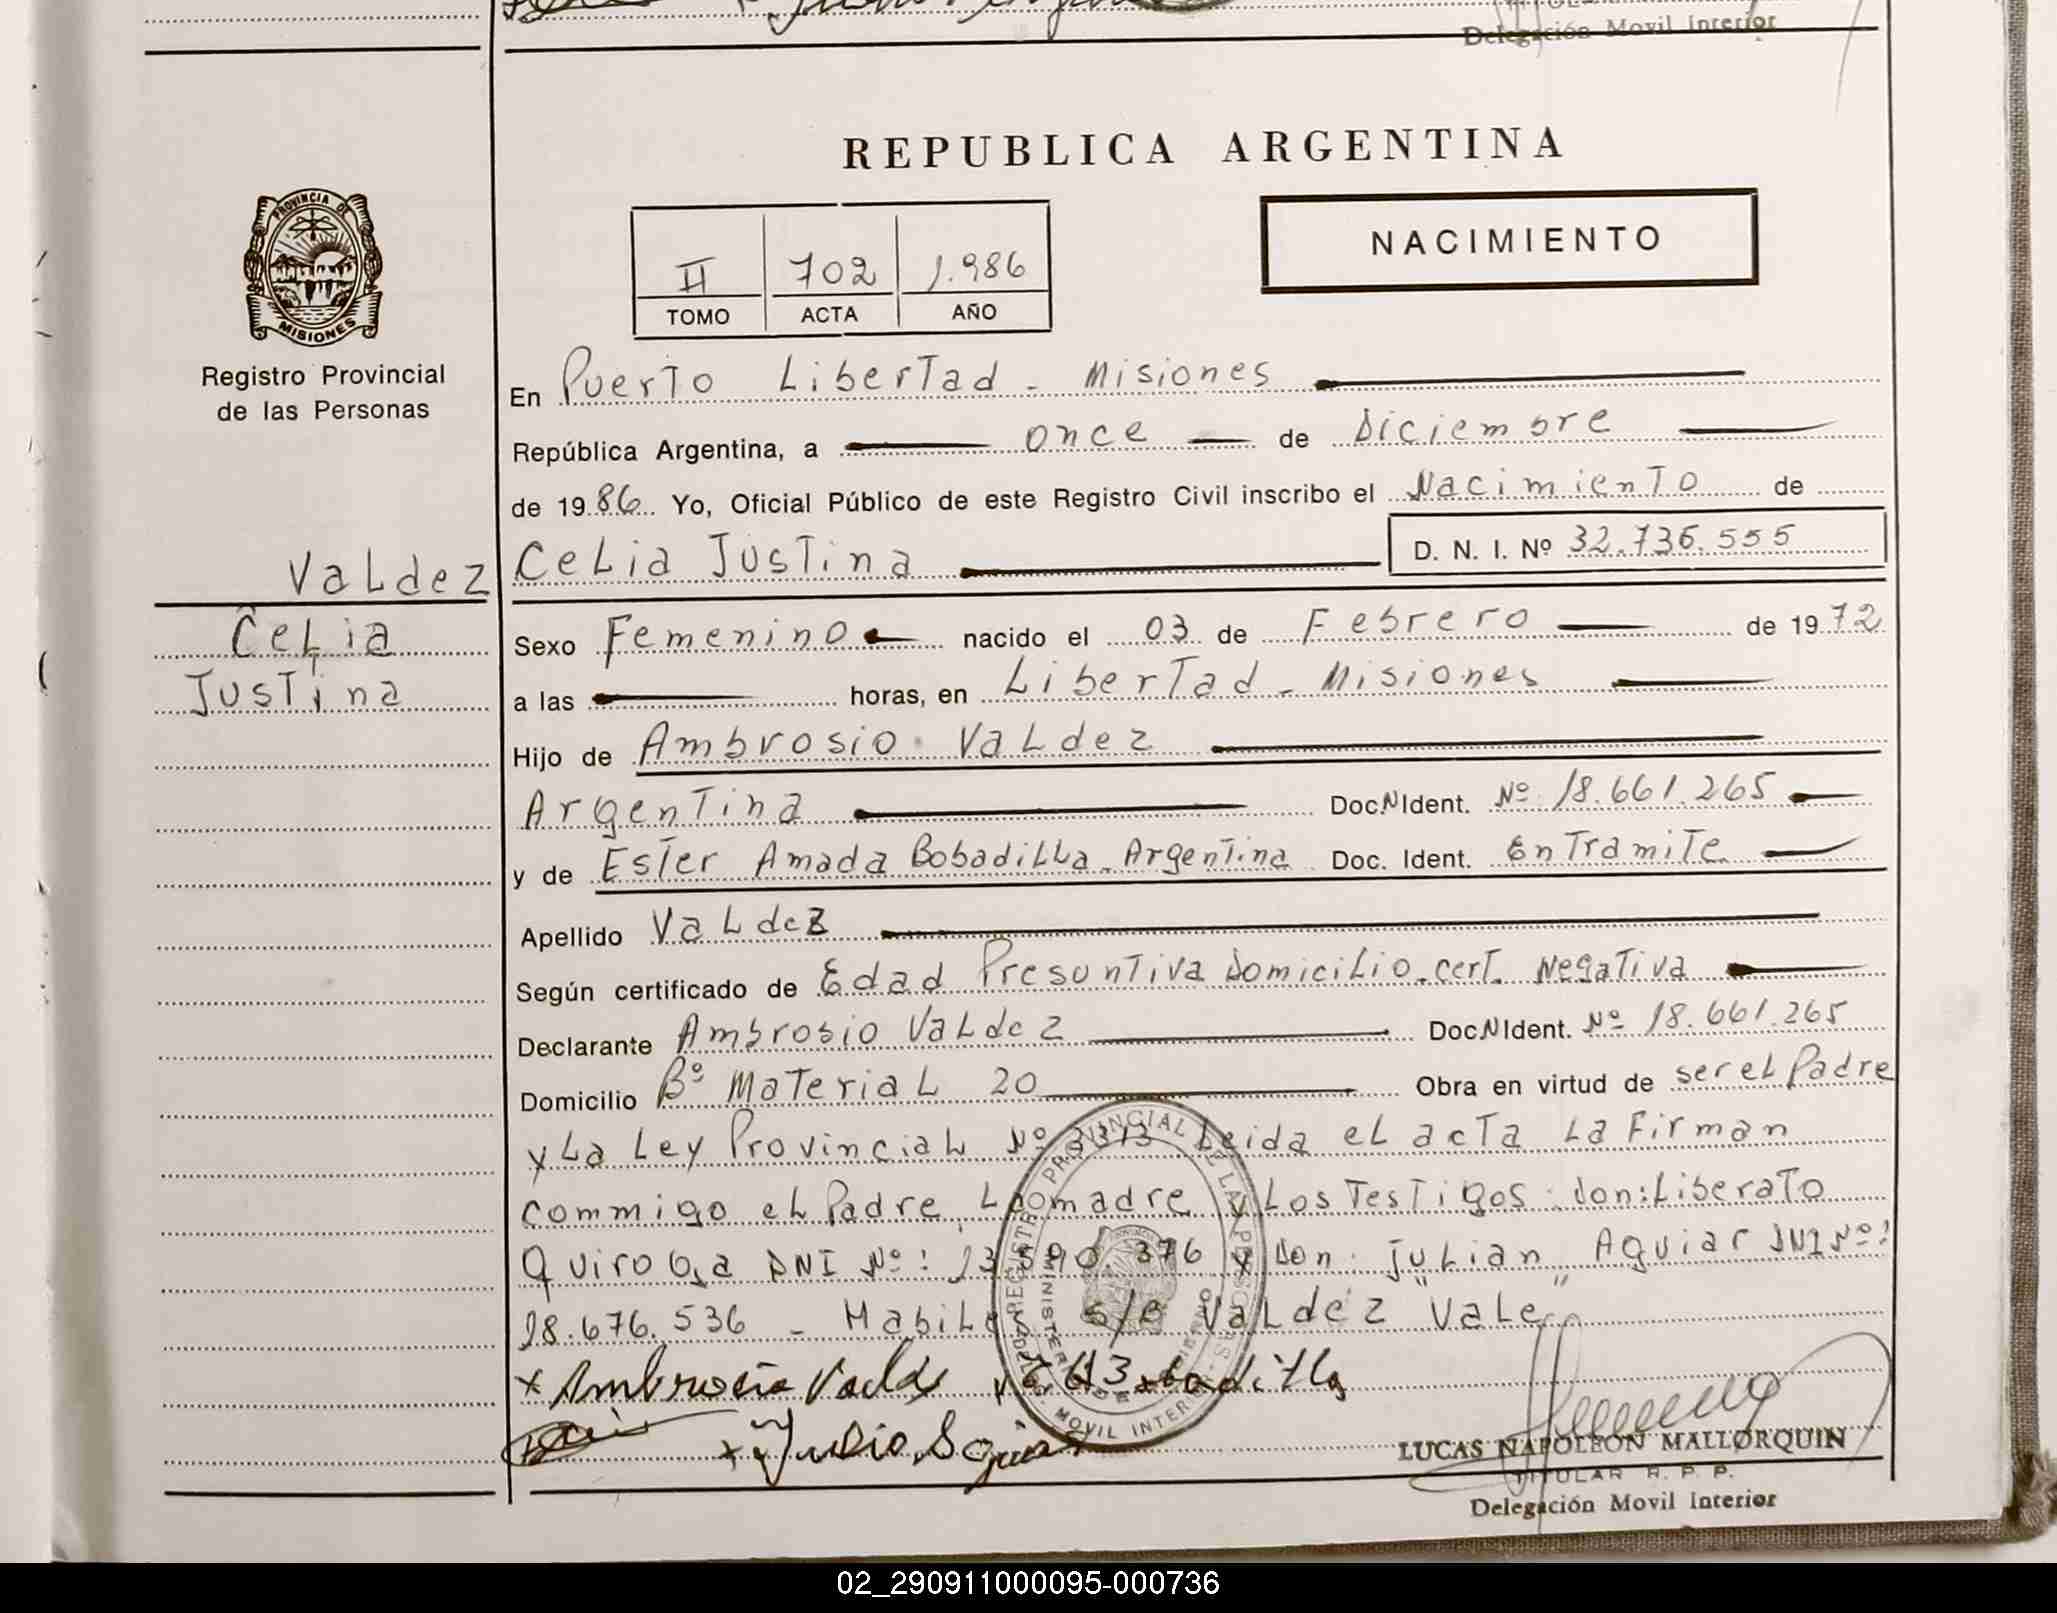 Delegación Movil Interior
REPUBLICA ARGENTINA
PROVINCIA DE
MISIONES
Registro Provincial
de las Personas
II 702 1.986
TOMO ACTA AÑO
NACIMIENTO
En Puerto Libertad - Misiones
República Argentina, a once de Diciembre
de 1986. Yo, Oficial Público de este Registro Civil inscribo el Nacimiento de
Valdez Celia Justina D. N. I. Nº 32.736.555
Celia
Justina
Sexo Femenino nacido el 03 de Febrero de 1972
a las horas, en Libertad - Misiones
Hijo de Ambrosio Valdez
Argentina Doc.N Ident. Nº 18.661.265
y de Ester Amada Bobadilla - Argentina Doc. Ident. En Tramite
Apellido Valdez
Según certificado de Edad Presuntiva Domicilio - cert. Negativa
Declarante Ambrosio Valdez Doc.N Ident. Nº 18.661.265
Domicilio Bº Material 20 Obra en virtud de ser el Padre
y La Ley Provincial Nº 2313 Leida el acta La Firman
commigo el Padre, La madre y Los Testigos: don: Liberato
Quiroga DNI Nº: 13.590.376 y Don: Julian Aguiar DNI Nº:
18.676.536 - Habile s/e Valdez "Vale"
x Ambrosio Valde
LUCAS NAPOLEON MALLORQUIN
TITULAR R. P. P.
Delegación Movil Interior
02_290911000095-000736